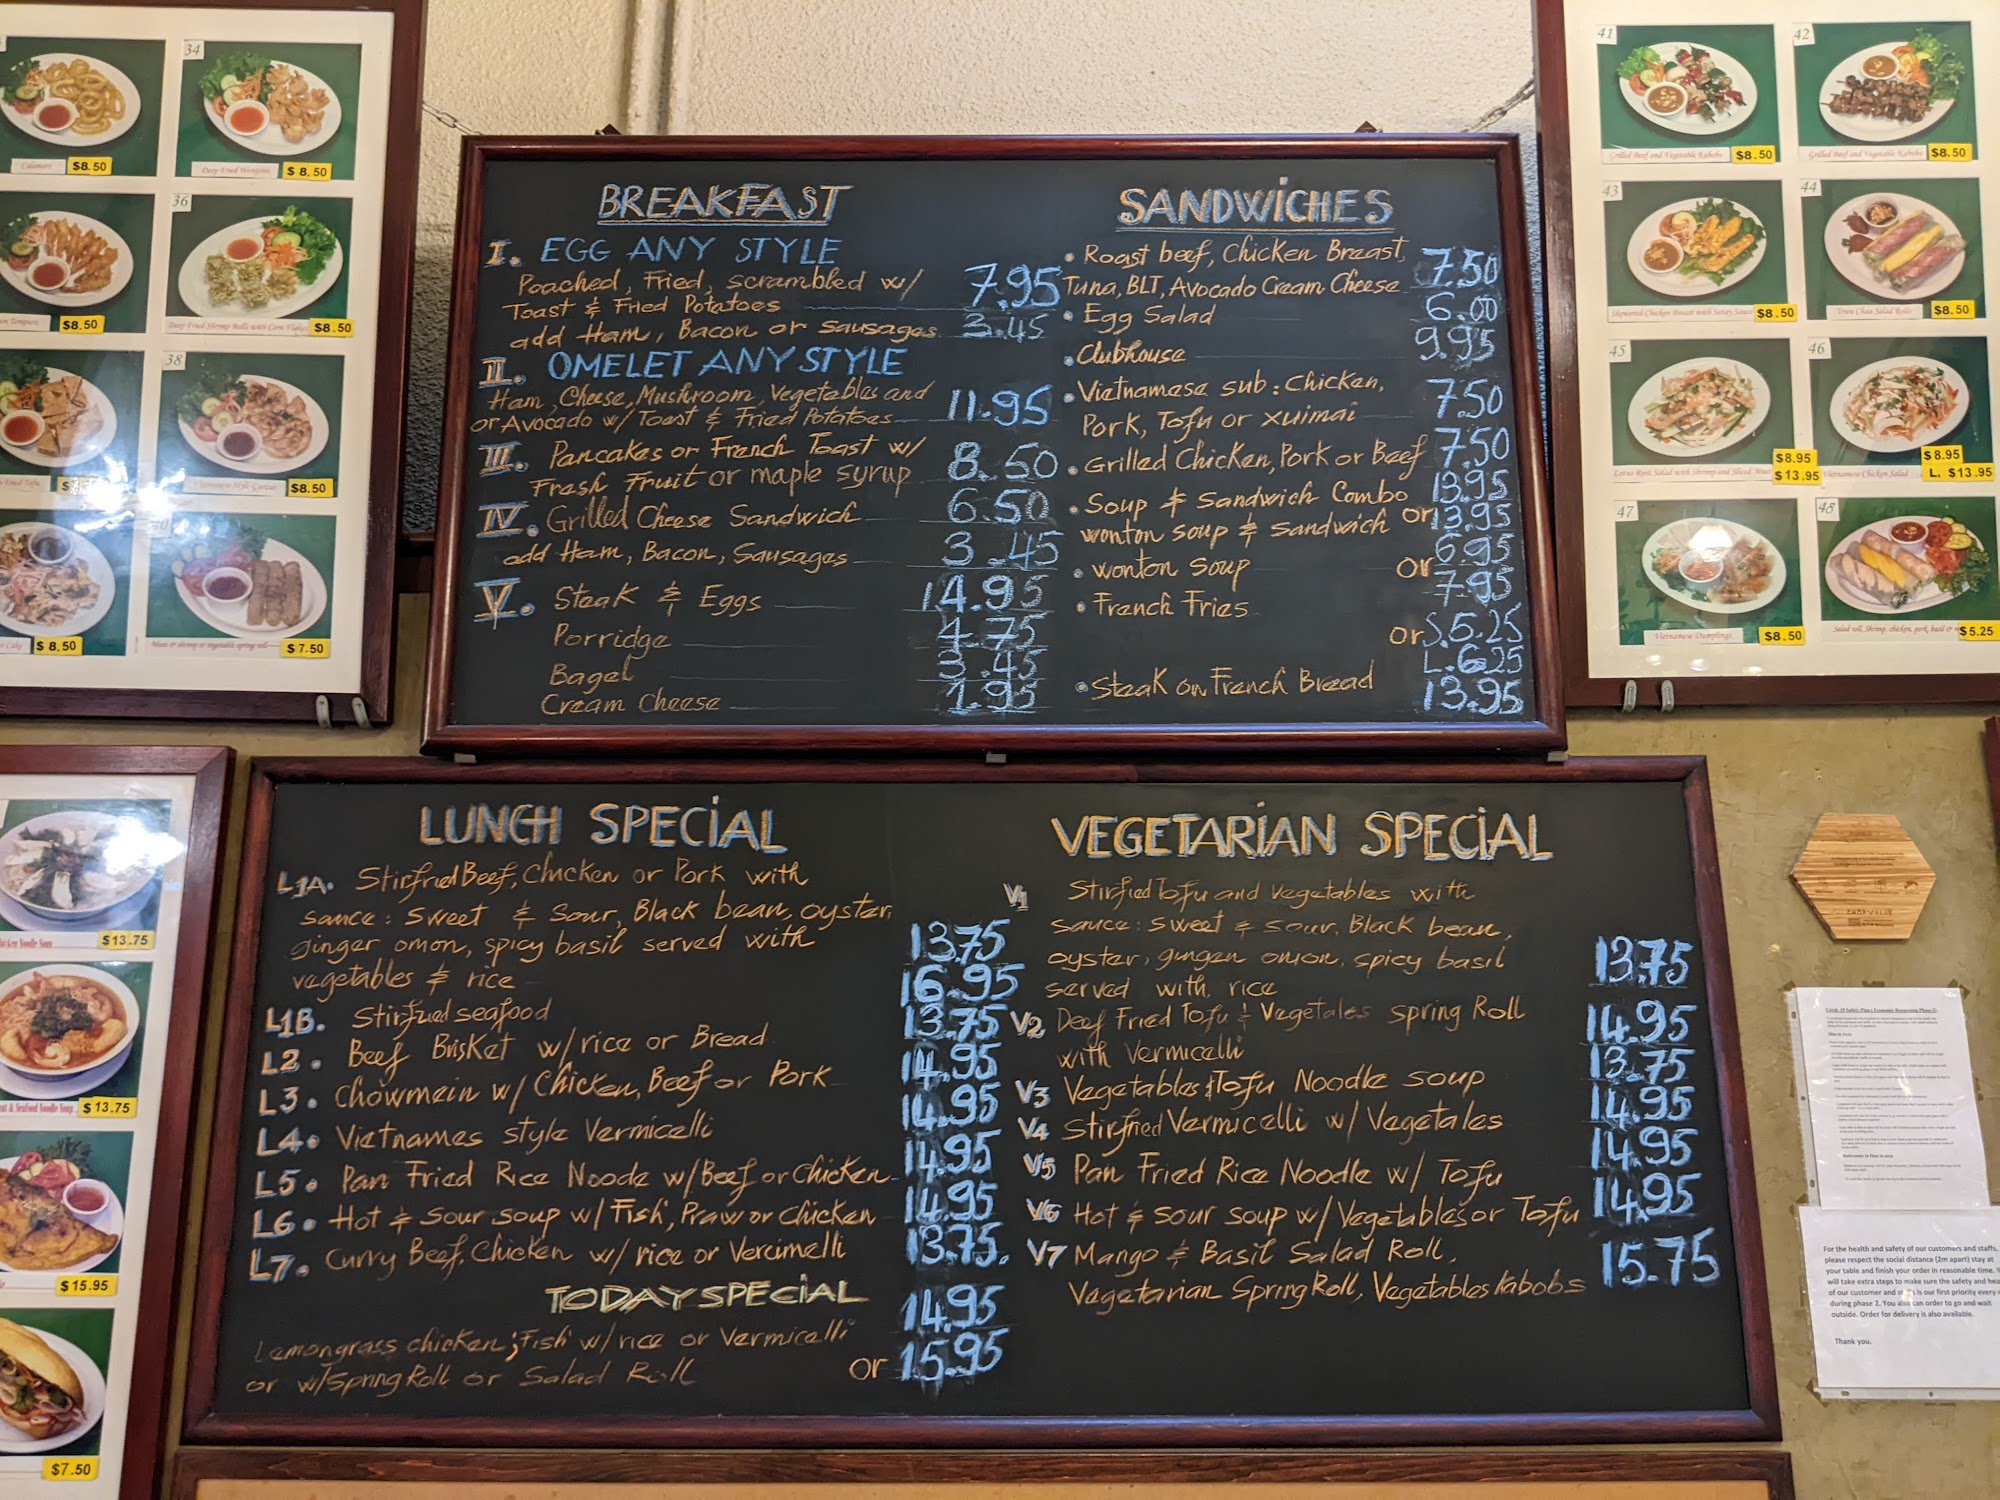 34
Calamari $8.50
Deep Fried Wontons $8.50
36
Tempura $8.50
Deep Fried Shrimp Balls with Corn Flakes $8.50
38
Fried Tofu
$8.50
40
Cake $8.50
Meat or shrimp or vegetable spring roll $7.50
BREAKFAST
I. EGG ANY STYLE
Poached, Fried, scrambled w/ 7.95
Toast & Fried Potatoes
add Ham, Bacon or sausages 3.45
II. OMELET ANY STYLE
Ham, Cheese, Mushroom, Vegetables and 11.95
or Avocado w/ Toast & Fried Potatoes
III. Pancakes or French Toast w/ 8.50
Fresh Fruit or maple syrup
IV. Grilled Cheese Sandwich 6.50
add Ham, Bacon, Sausages 3.45
V. Steak & Eggs 14.95
Porridge 4.75
Bagel 3.45
Cream Cheese 1.95
SANDWiCHES
• Roast beef, Chicken Breast, 7.50
Tuna, BLT, Avocado Cream Cheese
• Egg Salad 6.00
• Clubhouse 9.95
• Vietnamese sub: Chicken, 7.50
Pork, Tofu or xuimai
• Grilled Chicken, Pork or Beef 7.50
• Soup & Sandwich Combo 13.95
wonton soup & sandwich or 13.95
• wonton soup 6.95
or 7.95
• French Fries
or S. 5.25
L. 6.25
• Steak on French Bread 13.95
41
42
Grilled Beef and Vegetable Kabobs $8.50
Grilled Beef and Vegetable Kabobs $8.50
43
44
Skewered Chicken Breast with Satay Sauce $8.50
Salad Rolls $8.50
45
46
Lotus Root Salad with Shrimp and Sliced Meat $8.95
$13.95
Vietnamese Chicken Salad $8.95
L. $13.95
47
48
Vietnamese Dumplings $8.50
Salad roll, Shrimp, chicken, pork, basil $5.25
LUNCH SPECiAL
L1A. Stirfried Beef, Chicken or Pork with
sauce: sweet & sour, Black bean, oyster,
ginger onion, spicy basil served with 13.75
vegetables & rice
L1B. Stirfried seafood 16.95
L2. Beef Brisket w/ rice or Bread 13.75
L3. Chowmein w/ Chicken, Beef or Pork 14.95
L4. Vietnames style Vermicelli 14.95
L5. Pan Fried Rice Noode w/ Beef or Chicken 14.95
L6. Hot & sour soup w/ Fish, Praw or Chicken 14.95
L7. Curry Beef, Chicken w/ rice or Vercimelli 13.75.
TODAY SPECIAL
14.95
Lemongrass chicken, Fish w/ rice or Vermicelli
or w/ Spring Roll or Salad Roll or 15.95
VEGETARIAN SPECiAL
V1 Stirfied Tofu and Vegetables with
sauce: sweet & sour, Black bean,
oyster, gingen onion, spicy basil 13.75
served with rice
V2 Deef Fried Tofu & Vegetales spring Roll 14.95
with Vermicelli
V3 Vegetables & Tofu Noodle soup 13.75
V4 Stirfried Vermicelli w/ Vegetales 14.95
V5 Pan Fried Rice Noodle w/ Tofu 14.95
V6 Hot & sour soup w/ Vegetables or Tofu 14.95
V7 Mango & Basil Salad Roll, 15.75
Vegetarian Spring Roll, Vegetables Kabobs
Noodle Soup $13.75
& Seafood Noodle Soup $13.75
$15.95
$7.50
Covid -19 Safety Plan ( Economic Reopening Phase 2)
For the health and safety of our customers and staffs,
please respect the social distance (2m apart) stay at
your table and finish your order in reasonable time.
will take extra steps to make sure the safety and
of our customer and is our first priority every
during phase 2. You also can order to go and wait
outside. Order for delivery is also available.
Thank you.